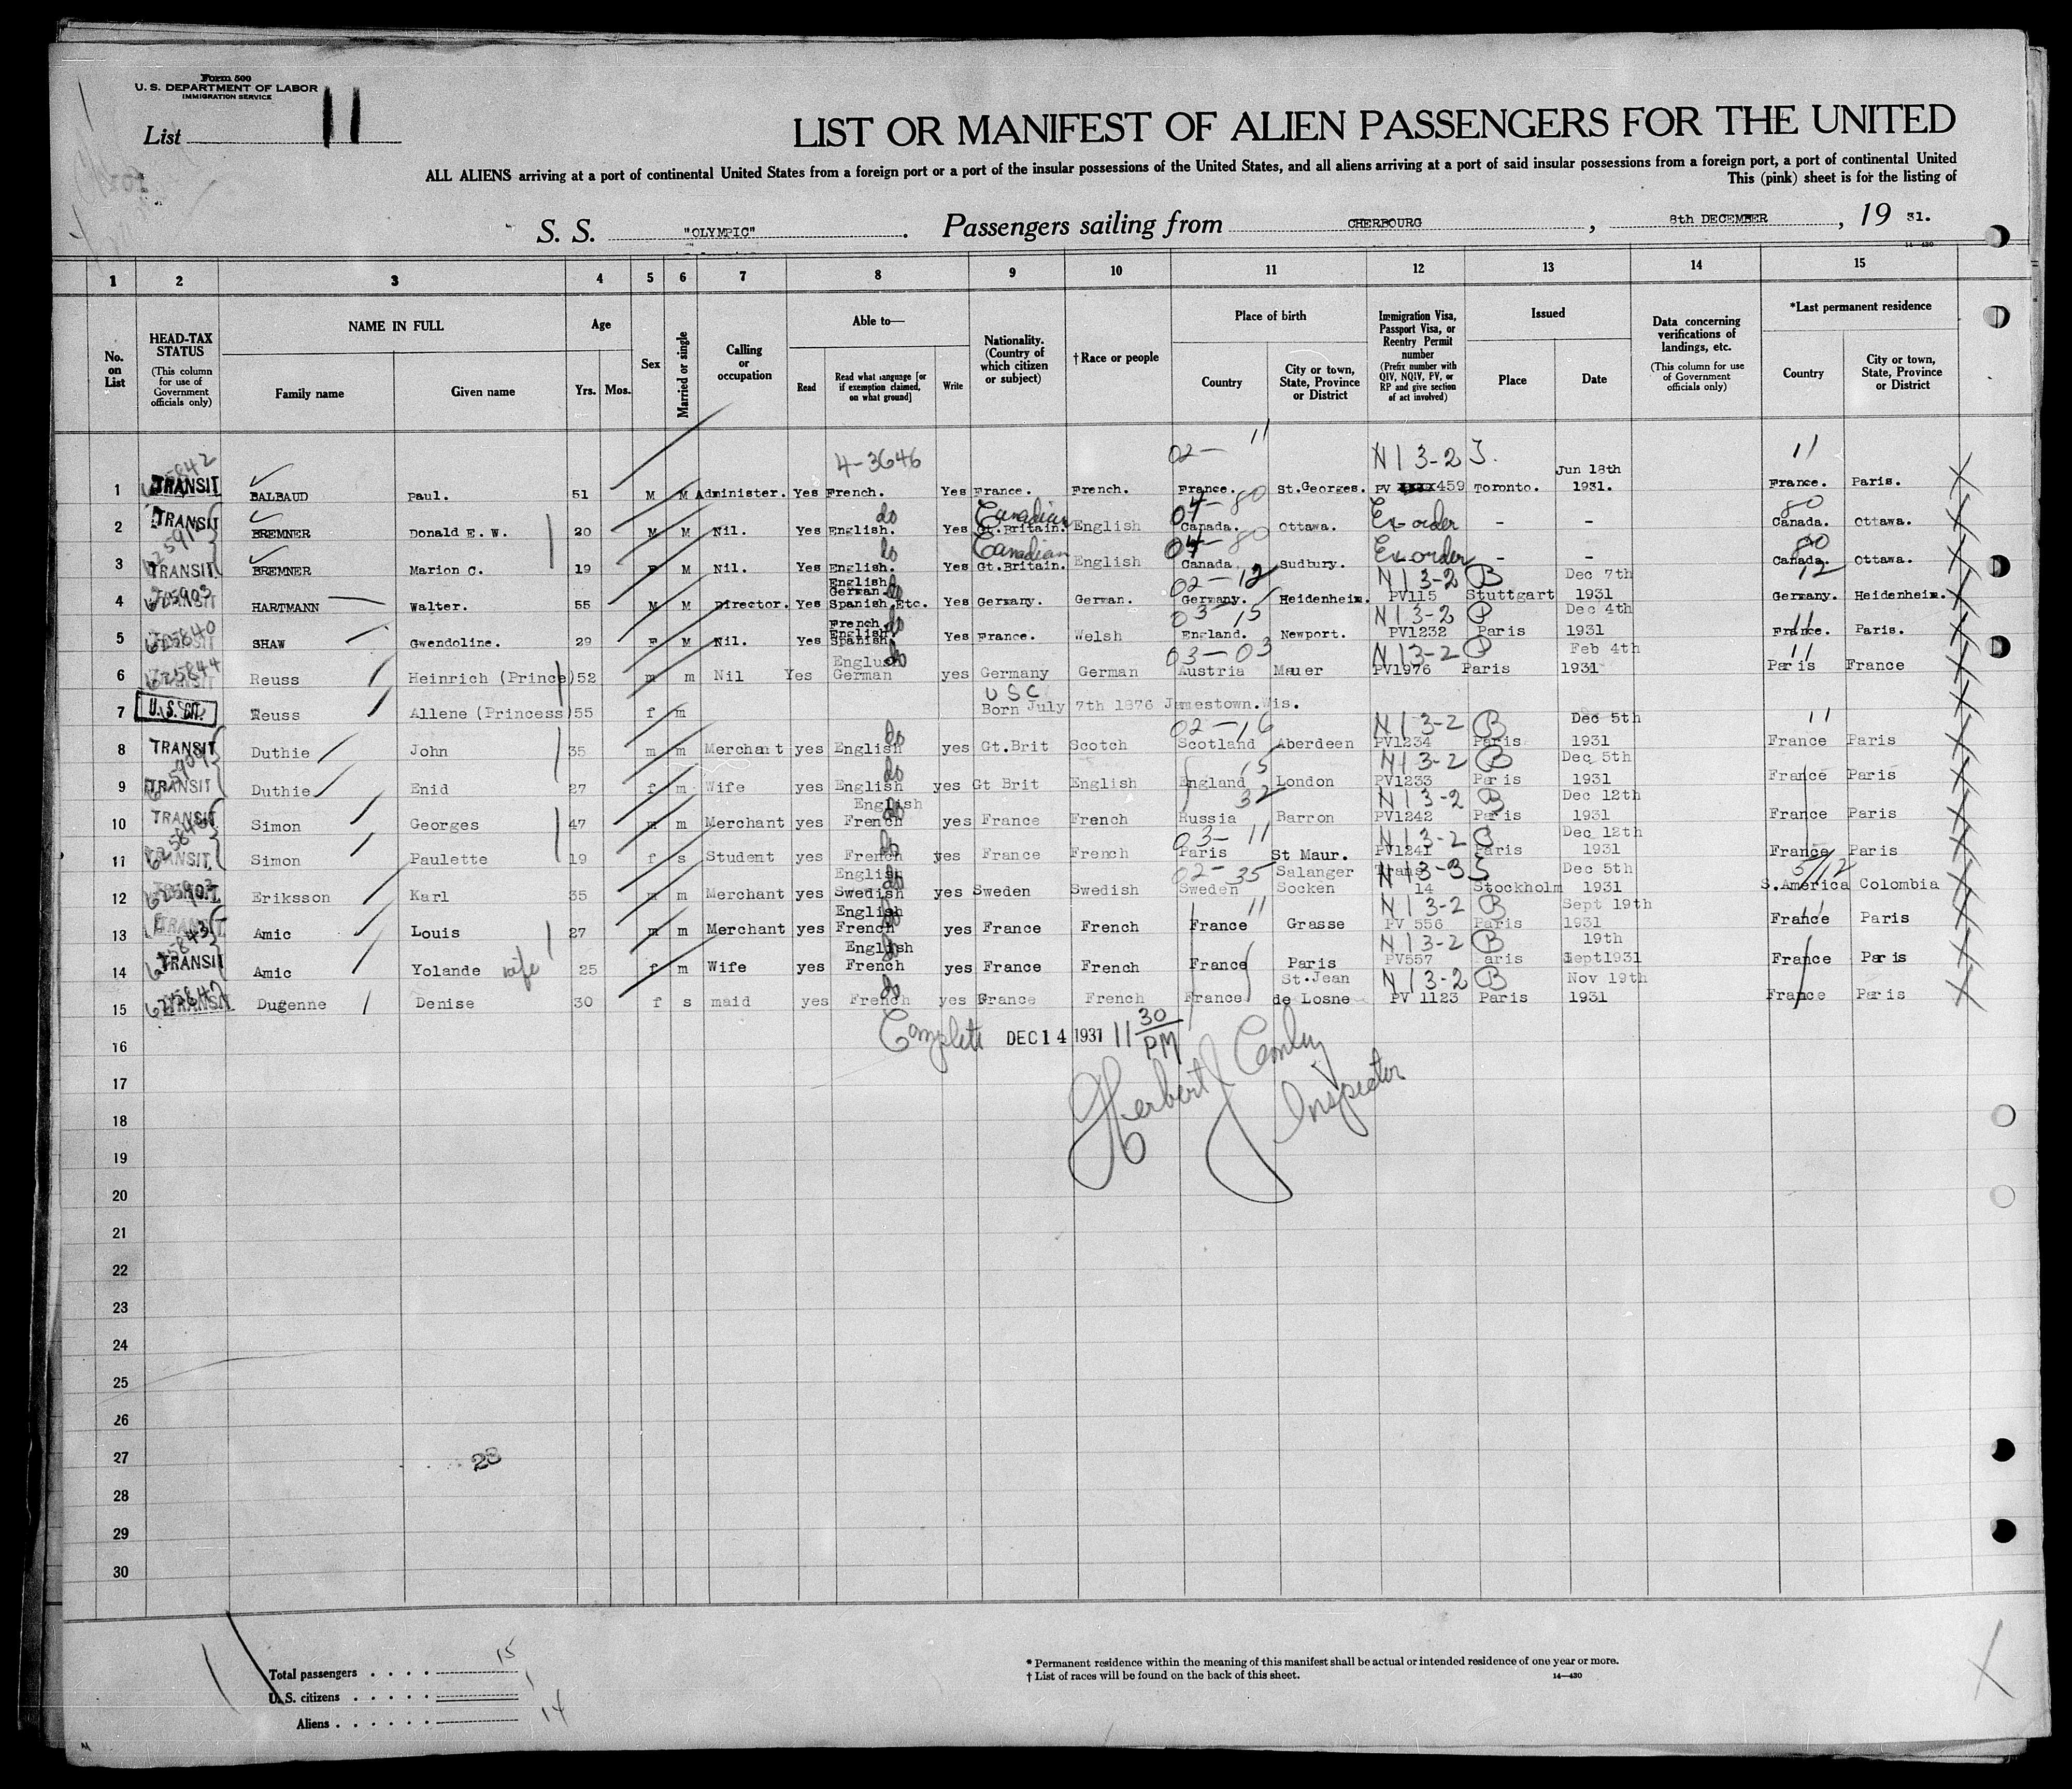 Form 500
U. S. DEPARTMENT OF LABOR
IMMIGRATION SERVICE
List 11
LIST OR MANIFEST OF ALIEN PASSENGERS FOR THE UNITED
ALL ALIENS arriving at a port of continental United States from a foreign port or a port of the insular possessions of the United States, and all aliens arriving at a port of said insular possessions from a foreign port, a port of continental United
This (pink) sheet is for the listing of
S. S. "OLYMPIC". Passengers sailing from CHERBOURG, 8th DECEMBER, 19 31.
14-430
1 2 3 4 5 6 7 8 9 10 11 12 13 14 15
No. on List
HEAD-TAX STATUS
(This column for use of Government officials only)
NAME IN FULL
Family name
Given name
Age
Yrs. Mos.
Sex
Married or single
Calling or occupation
Able to—
Read
Read what language [or if exemption claimed, on what ground]
Write
Nationality. (Country of which citizen or subject)
†Race or people
Place of birth
Country
City or town, State, Province or District
Immigration Visa, Passport Visa, or Reentry Permit number
(Prefix number with QIV, NQIV, PV, or RP and give section of act involved)
Issued
Place
Date
Data concerning verifications of landings, etc.
(This column for use of Government officials only)
*Last permanent residence
Country
City or town, State, Province or District
4-3646 02- 11 N13-2 J. Jun 18th 11
1 TRANSIT BALBAUD Paul. 51 M M Administer. Yes French. Yes France. French. France. St.Georges. PV 459 Toronto. 1931. France. Paris.
do Canadian 04-80 80
2 TRANSIT BREMNER Donald E. W. 20 M M Nil. Yes English. Yes Gt.Britain. English Canada. Ottawa. Ex-order - - Canada. Ottawa.
do Canadian 04-80 80
3 TRANSIT BREMNER Marion C. 19 F M Nil. Yes English. Yes Gt.Britain. English Canada. Sudbury. Ex-order - - Canada. Ottawa.
English German do 02-12 N13-2 B Dec 7th 12
4 625903 HARTMANN Walter. 55 M M Director. Yes Spanish Etc. Yes Germany. German. Germany. Heidenheim. PV115 Stuttgart 1931 Germany. Heidenheim.
French English do 03-15 N13-2 P Dec 4th 11
5 625840 SHAW Gwendoline. 29 F M Nil. Yes Spanish. Yes France. Welsh England. Newport. PV1232 Paris 1931 France. Paris.
English do 03-03 N13-2 P Feb 4th 11
6 625844 Reuss Heinrich (Prince) 52 m m Nil Yes German yes Germany German Austria Mauer PV1976 Paris 1931 Paris France
U S C
7 U. S. CIT. Reuss Allene (Princess) 55 f m Born July 7th 1876 Jamestown.Wis.
do 02-16 N13-2 B Dec 5th 11
8 TRANSIT Duthie John 35 m m Merchant yes English yes Gt.Brit Scotch Scotland Aberdeen PV1234 Paris 1931 France Paris
do 15 N13-2 B Dec 5th
9 TRANSIT Duthie Enid 27 f m Wife yes English yes Gt Brit English England London PV1233 Paris 1931 France Paris
English do 32 N13-2 B Dec 12th
10 TRANSIT Simon Georges 47 m m Merchant yes French yes France French Russia Barron PV1242 Paris 1931 France Paris
do 03-11 N13-2 B Dec 12th
11 TRANSIT Simon Paulette 19 f s Student yes French yes France French Paris St Maur. PV1241 Paris 1931 France Paris
English do 02-35 Salanger Trans N13-3 S Dec 5th 5/12
12 Eriksson Karl 35 m m Merchant yes Swedish yes Sweden Swedish Sweden Socken 14 Stockholm 1931 S.America Colombia
English do 11 N13-2 B Sept 19th 11
13 TRANSIT Amic Louis 27 m m Merchant yes French yes France French France Grasse PV 556 Paris 1931 France Paris
English do N13-2 B 19th
14 625843 TRANSIT Amic Yolande wife 25 f m Wife yes French yes France French France Paris PV557 Paris Sept1931 France Paris
do St.Jean N13-2 B Nov 19th
15 625847 TRANSIT Dugenne Denise 30 f s maid yes French yes France French France de Losne PV 1123 Paris 1931 France Paris
16 Complete DEC 14 1931 11 30 PM
17 Herbert J Conley
18 Inspector
19
20
21
22
23
24
25
26
27 23
28
29
30
Total passengers . . . . 15
U. S. citizens . . . . . 1
Aliens . . . . . . 14
* Permanent residence within the meaning of this manifest shall be actual or intended residence of one year or more.
† List of races will be found on the back of this sheet. 14—430